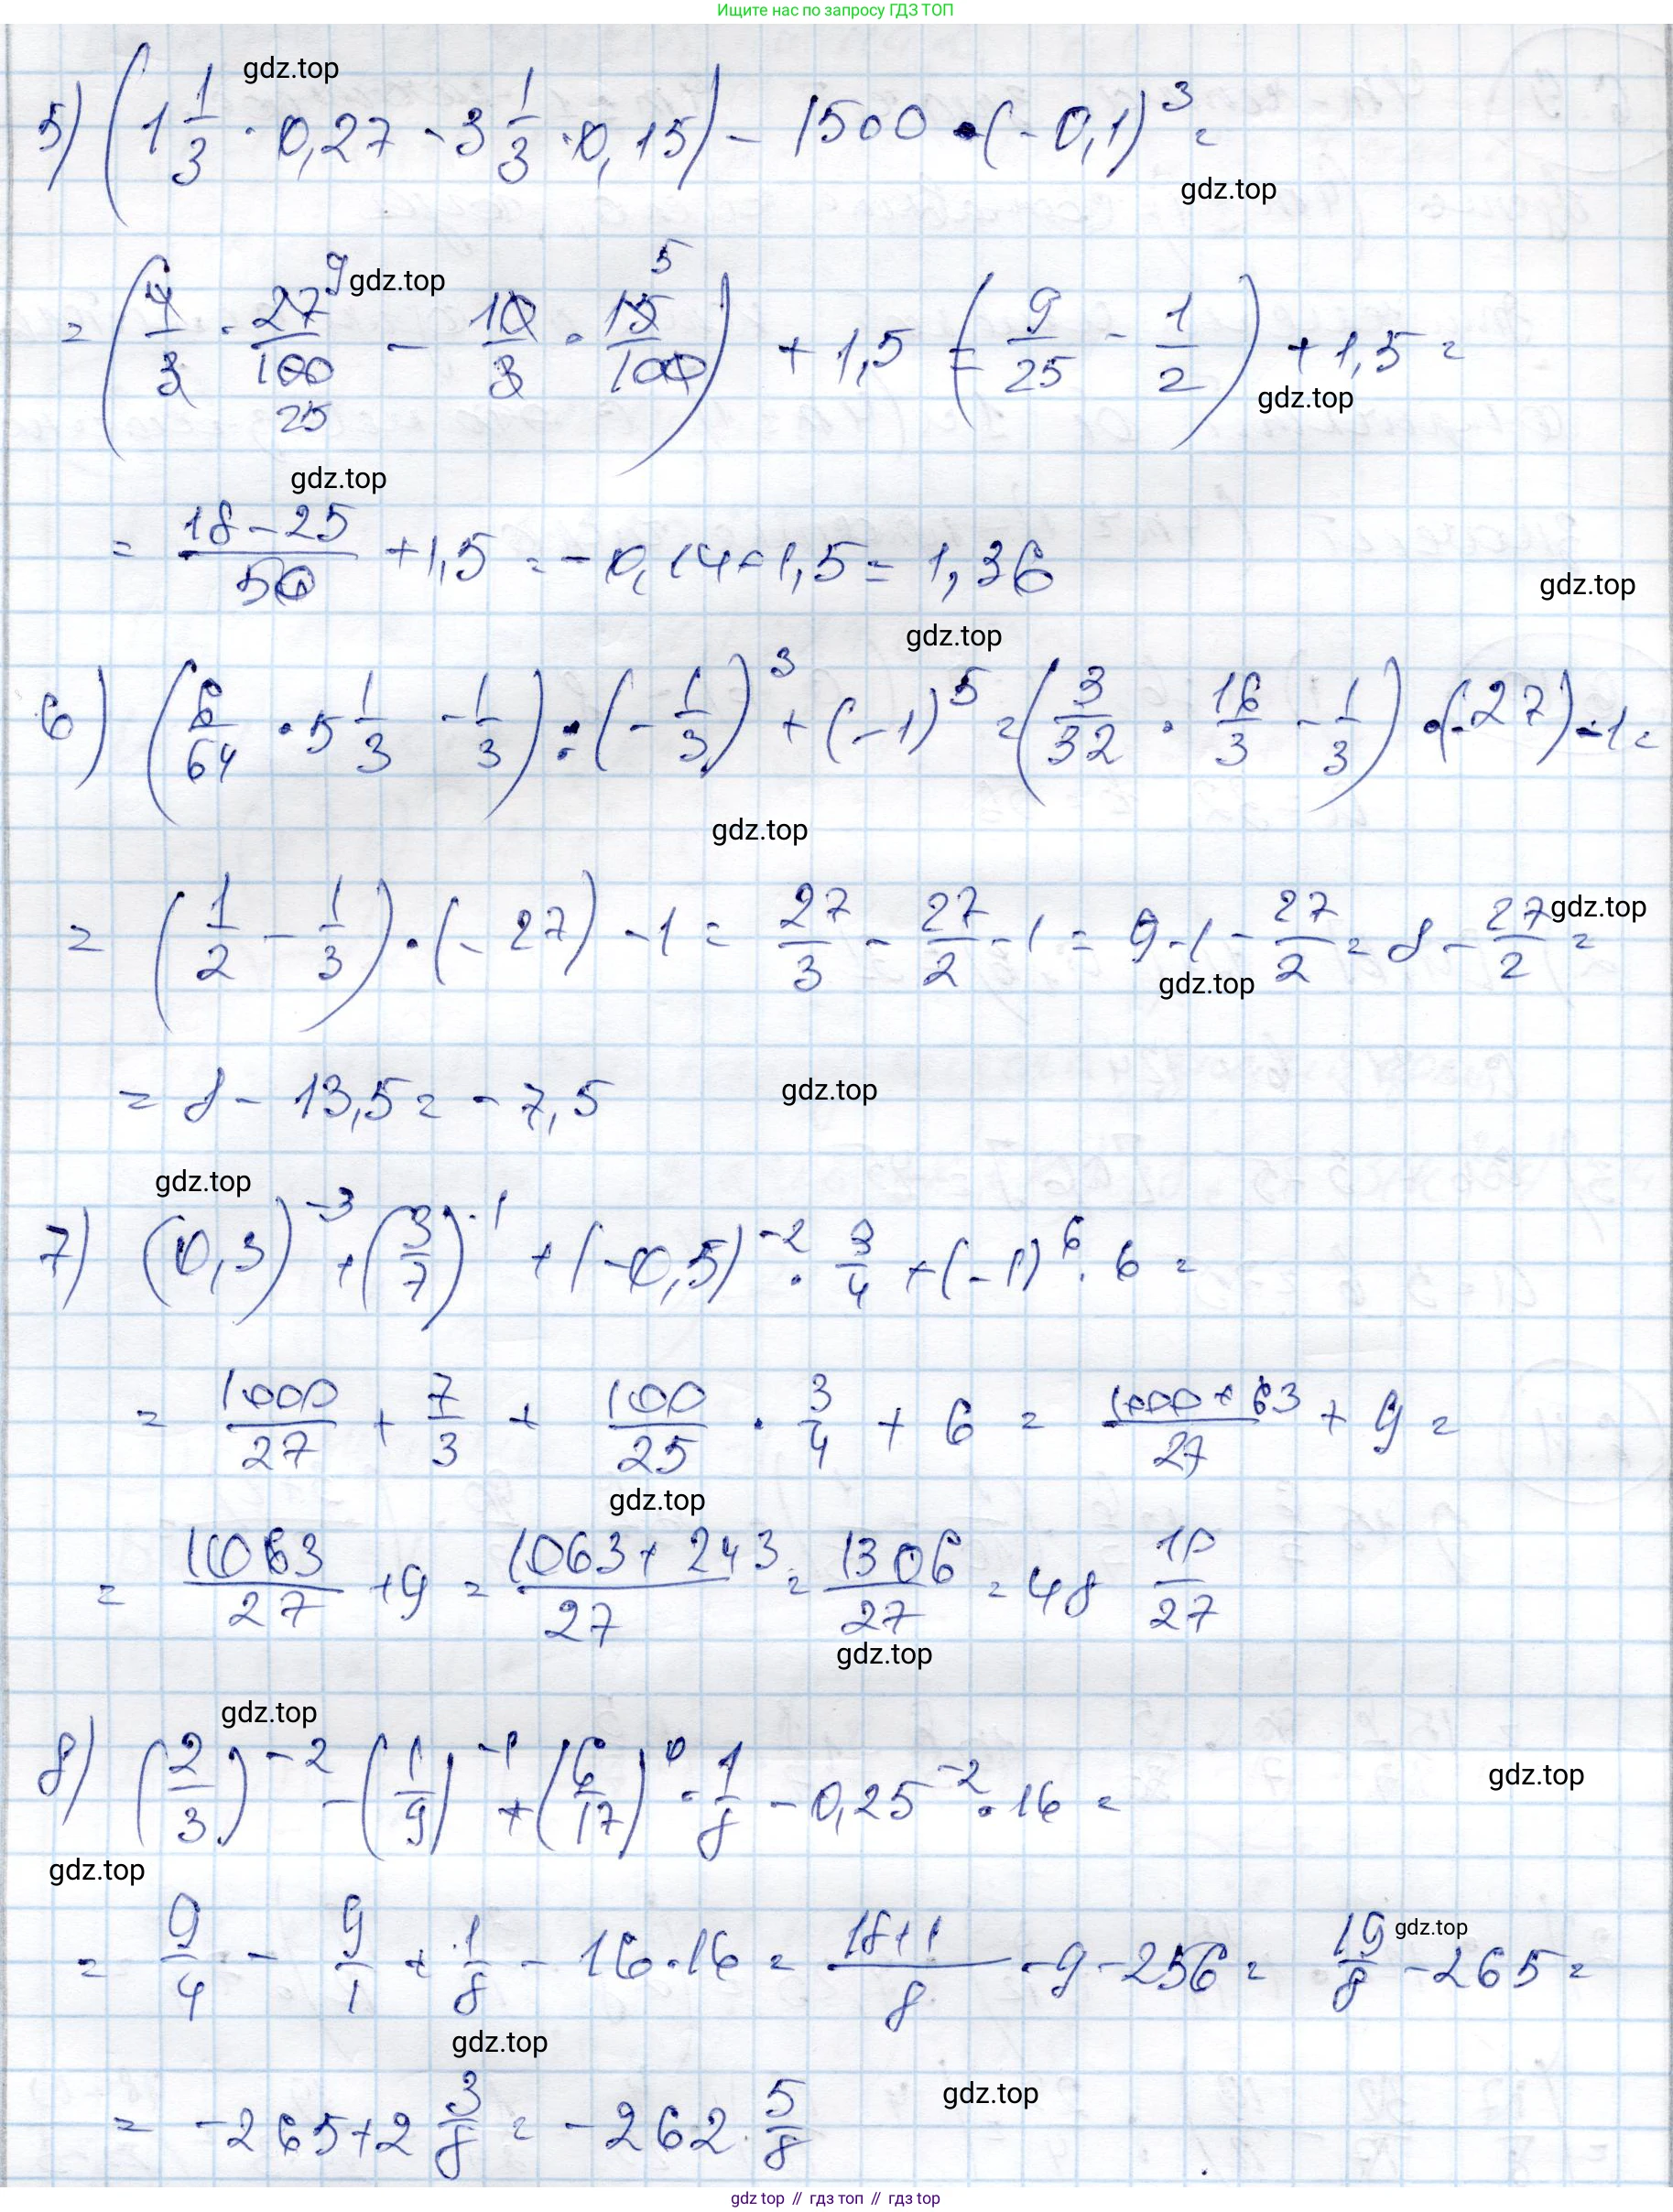 Ищите нас по запросу ГДЗ ТОП
gdz.top
5) (1 1/3 · 0,27 - 3 1/3 · 0,15) - 1500 · (-0,1)^3 =
gdz.top
= (4/3 · 27/100 - 10/3 · 15/100) + 1,5 = (9/25 - 1/2) + 1,5 =
9 gdz.top 5
25
gdz.top
gdz.top
= (18-25)/50 + 1,5 = -0,14+1,5 = 1,36
gdz.top
gdz.top
6) (6/64 · 5 1/3 - 1/3) : (-1/3)^3 + (-1)^5 = (3/32 · 16/3 - 1/3) · (-27) - 1 =
gdz.top
= (1/2 - 1/3) · (-27) - 1 = 27/3 - 27/2 - 1 = 9-1 - 27/2 = 8 - 27/2 =
gdz.top
gdz.top
= 8 - 13,5 = -7,5
gdz.top
gdz.top
7) (0,3)^-3 + (3/7)^-1 + (-0,5)^-2 · 3/4 + (-1)^6 · 6 =
= 1000/27 + 7/3 + 100/25 · 3/4 + 6 = (1000+63)/27 + 9 =
gdz.top
= 1063/27 + 9 = (1063+243)/27 = 1306/27 = 48 10/27
gdz.top
gdz.top
8) (2/3)^-2 - (1/9)^-1 + (6/17)^0 · 1/8 - 0,25^-2 · 16 =
gdz.top
gdz.top
= 9/4 - 9/1 + 1/8 - 16·16 = (18+1)/8 - 9 - 256 = 19/8 - 265 =
gdz.top
gdz.top
= -265+2 3/8 = -262 5/8
gdz.top
gdz top // гдз топ // gdz top